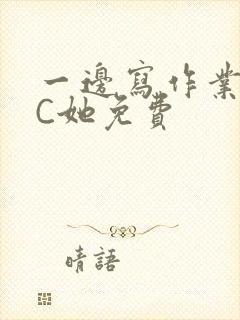 一邊寫作業
C她免費
晴語